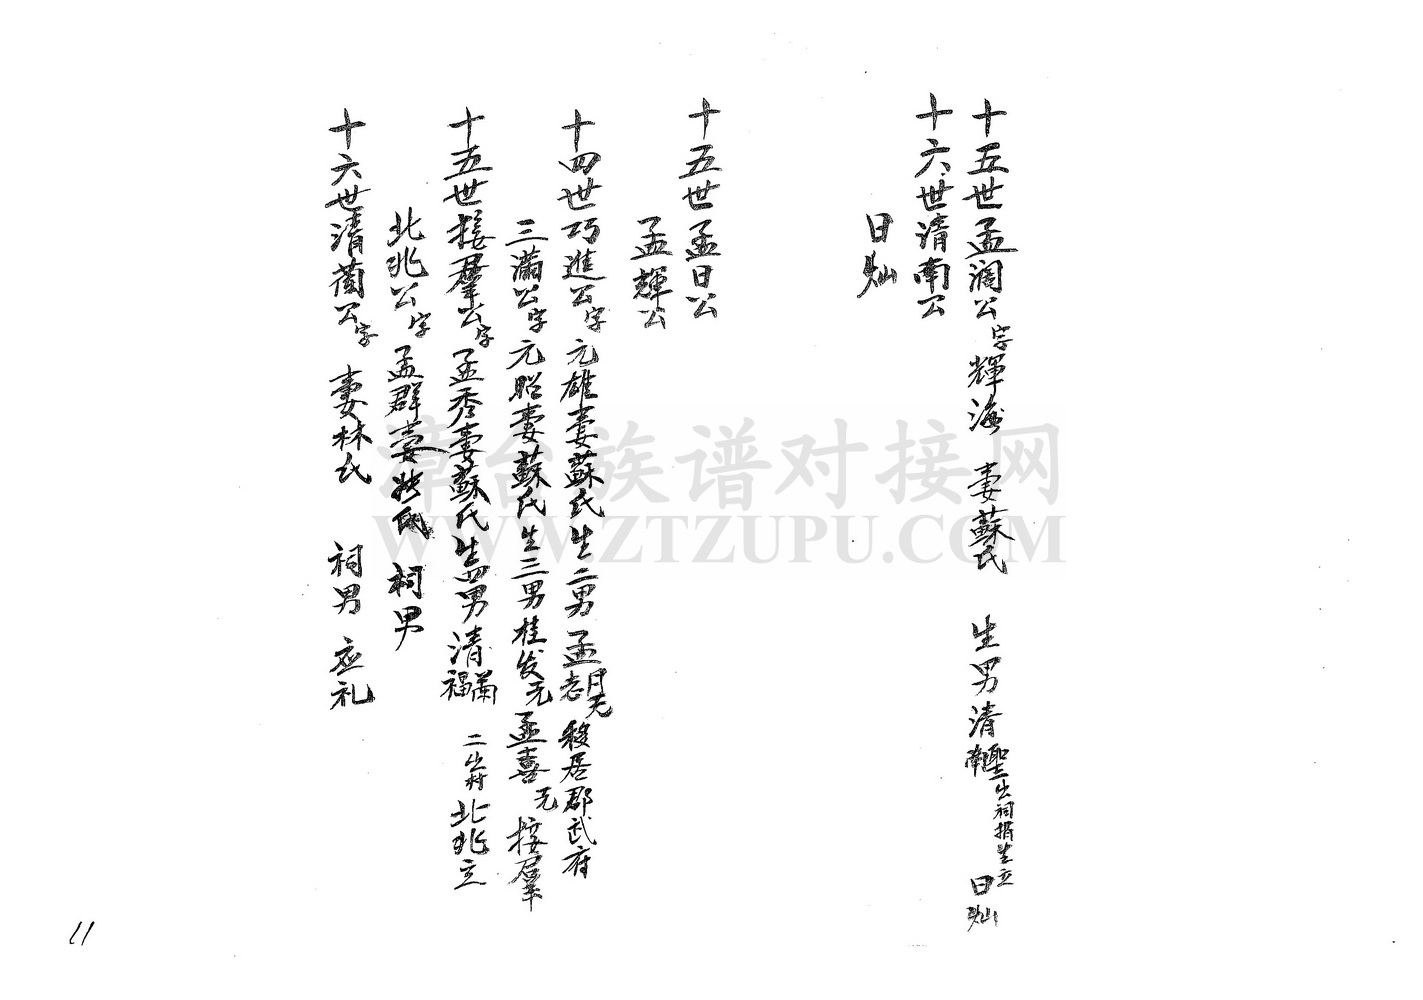 十五世孟润公字輝海 妻蘇氏 生男清聖南出祠捐生立日灿
十六世清南公
日灿
十五世孟日公
孟輝公
十四世巧進公字元雄妻蘇氏生二男孟日无志移居郡武府
三滿公字元昭妻蘇氏生三男桂发无孟喜无接羣
十五世接羣公字孟秀妻蘇氏生四男清蘭福二出村北兆立
北兆公字孟群妻 祠男
十六世清蘭公字 妻林氏 祠男应礼
11
漳台族谱对接网
WWW.ZTZUPU.COM